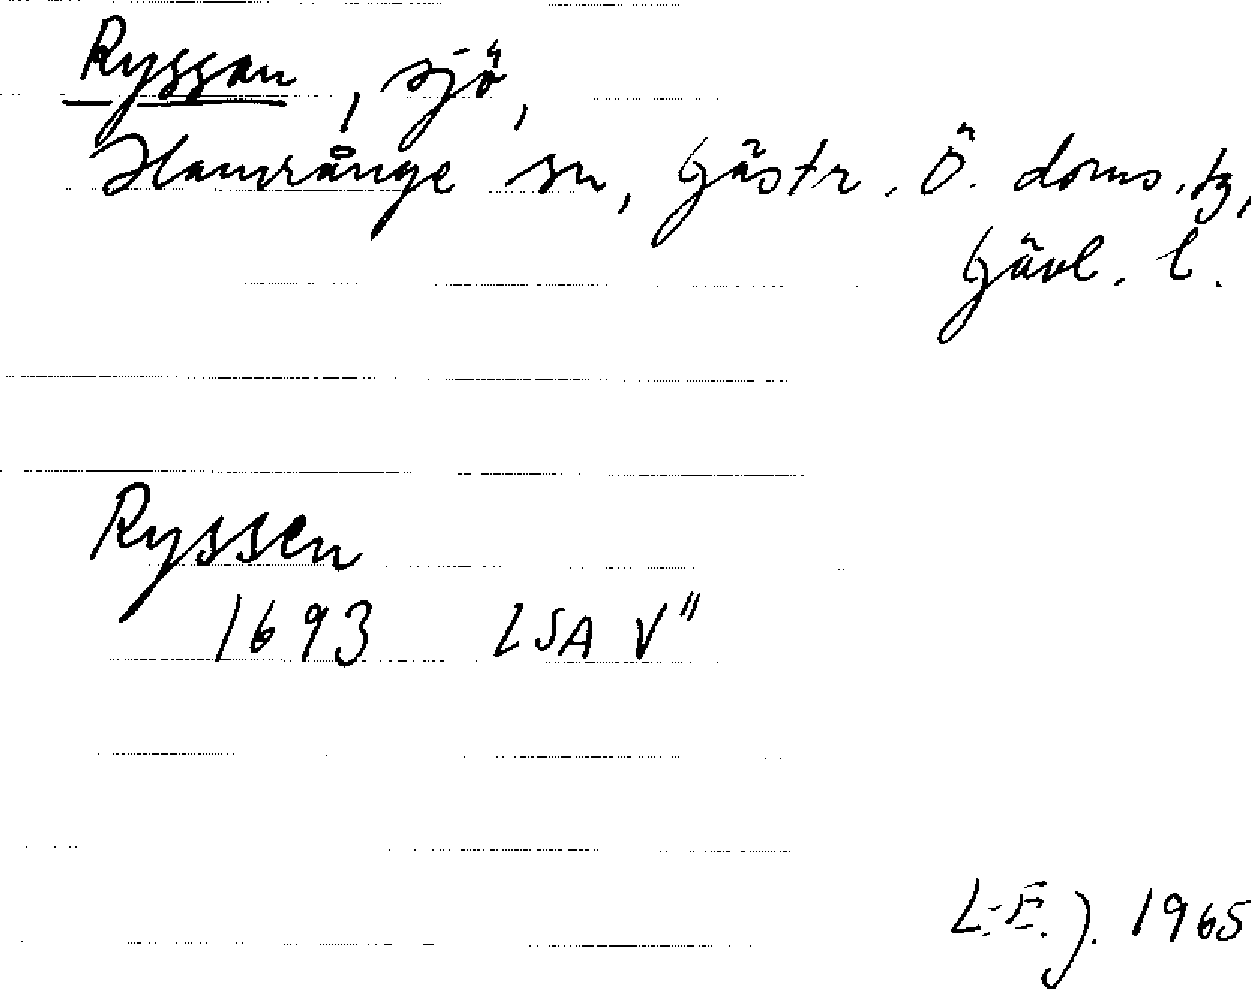 Ryssan, sjö,
Hamrånge sn, Gästr. Ö. doms. tg,
Gävl. l.
Ryssen
1693 LSA V"
L.-E. J. 1965